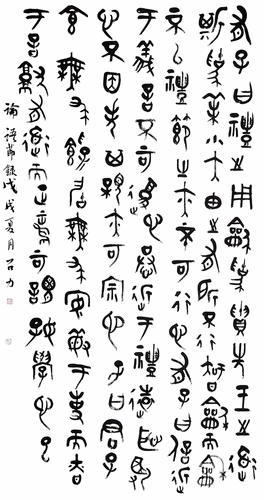 有子曰禮之用龢為貴先王之道
斯為美小大由之有所不行智龢而龢
不以禮節之亦不可行也有子曰信近
于義言可復也恭近于禮遠恥辱
也因不失其親亦可宗也子曰君子
食無求飽居無求安敏于事而慎
于言就有道而正焉可謂好學也已
論語節錄戊戌夏月